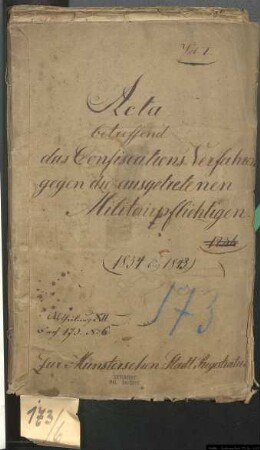 Vol. 1
Acta
betreffend
das Confiscations Verfahren
gegen die ausgetretenen
Militairpflichtigen
1834
(1834 bis 1843)
173
Abtheilung XII
Fach 173. No 6.
Zur Münsterschen Stadt Registratur
173
6